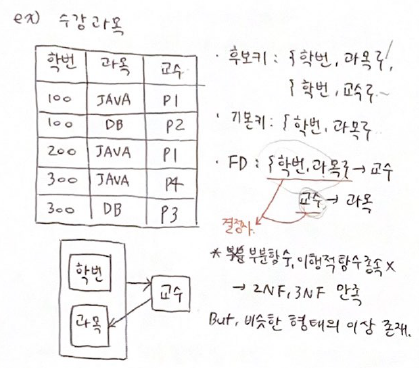 ex) 수강과목
학번 과목 교수
100 JAVA P1
100 DB P2
200 JAVA P1
300 JAVA P4
300 DB P3
· 후보키 : {학번, 과목},
{학번, 교수}
· 기본키 : {학번, 과목}
· FD : {학번, 과목} → 교수
교수 → 과목
결정자
학번
과목
교수
* 부분함수, 이행적 함수 종속 X
→ 2NF, 3NF 만족
But, 비슷한 형태의 이상 존재.